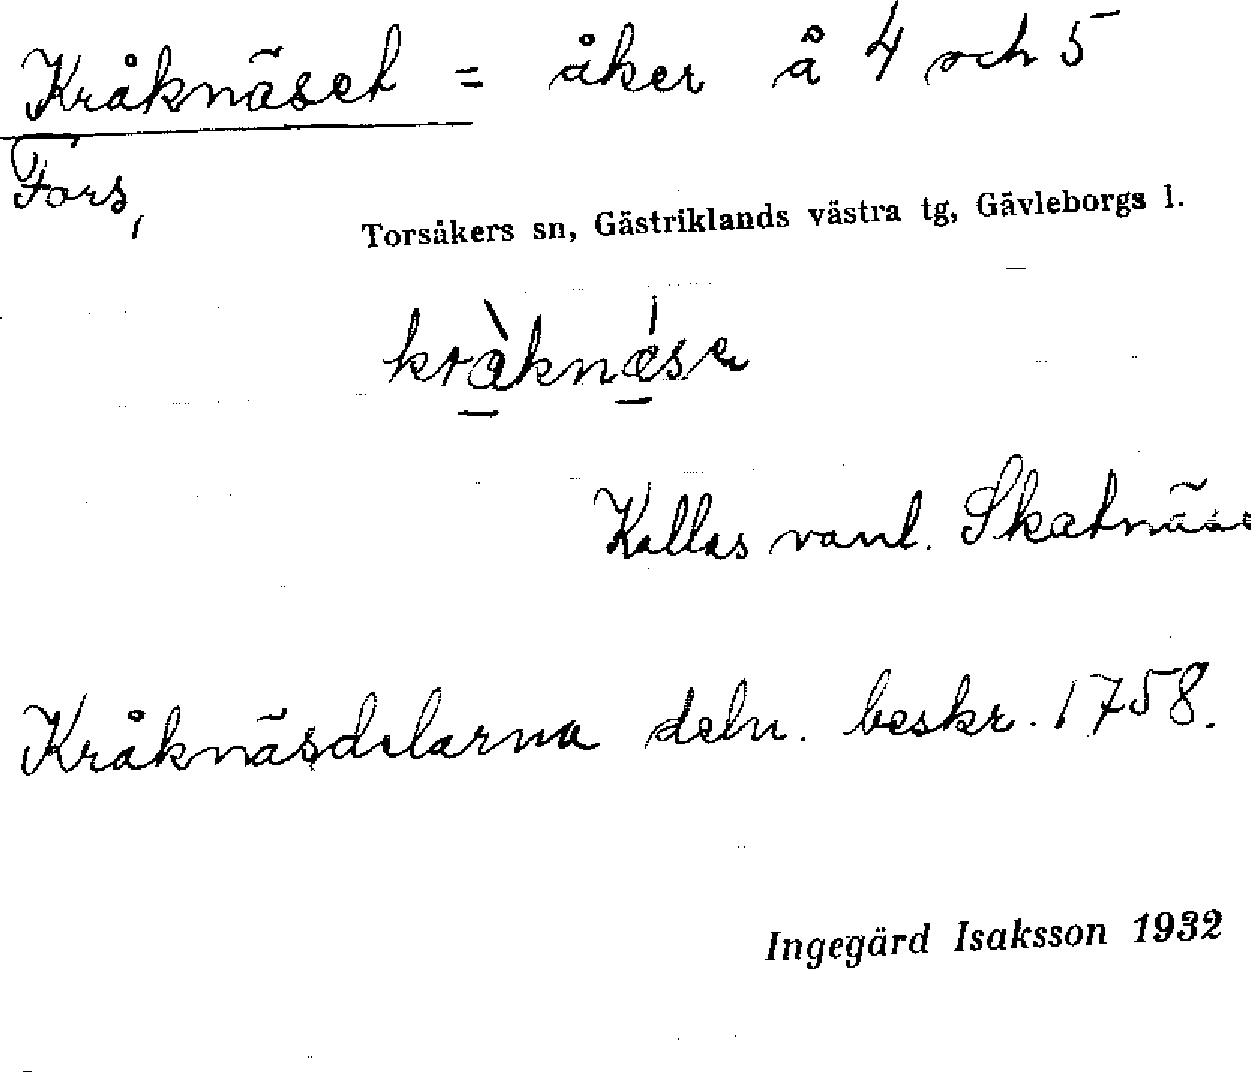 Kråknäset = åker å 4 och 5
Fors,
Torsåkers sn, Gästriklands västra tg, Gävleborgs l.
kråknäsə
Kallas vanl. Skatnäs
Kråknäsdelarna deln. beskr. 1758.
Ingegärd Isaksson 1932